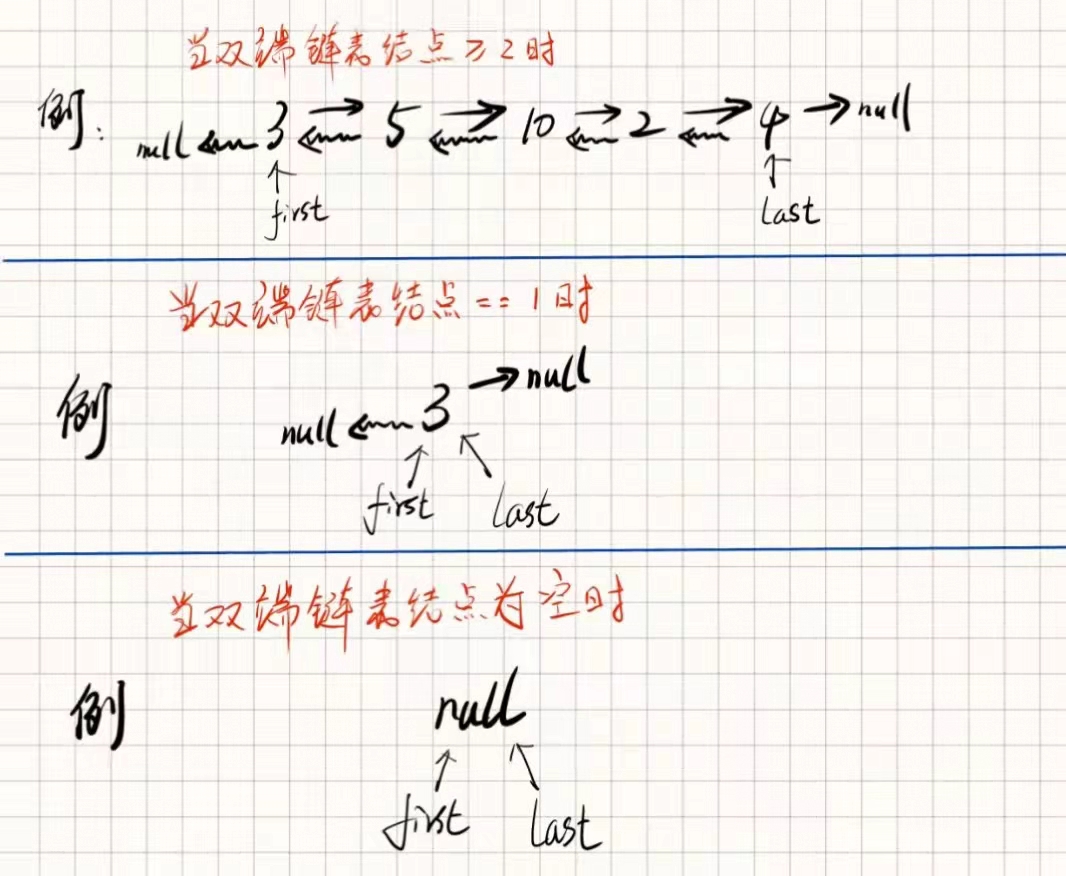 当双端链表结点≥2时
例: null ← 3 ⇄ 5 ⇄ 10 ⇄ 2 ⇄ 4 → null
↑ ↑
first last
当双端链表结点==1时
例 null ← 3 → null
↑ ↖
first last
当双端链表结点为空时
例 null
↑ ↖
first last